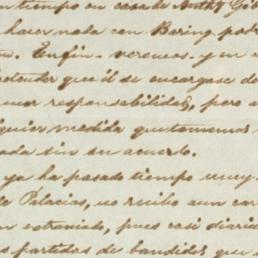 tiempo en casa de Anthy Gib
hacer nada con Baring, podr
Enfin veremos, y en
pretender que él se encargase d
mar responsabilidad, pero a
quier medida que tomemos
ada sin su acuerdo.
ya ha pasado tiempo muy
de Palacios, no recibo sus car
extraviado, pues casi diari
partidas de bandidos que